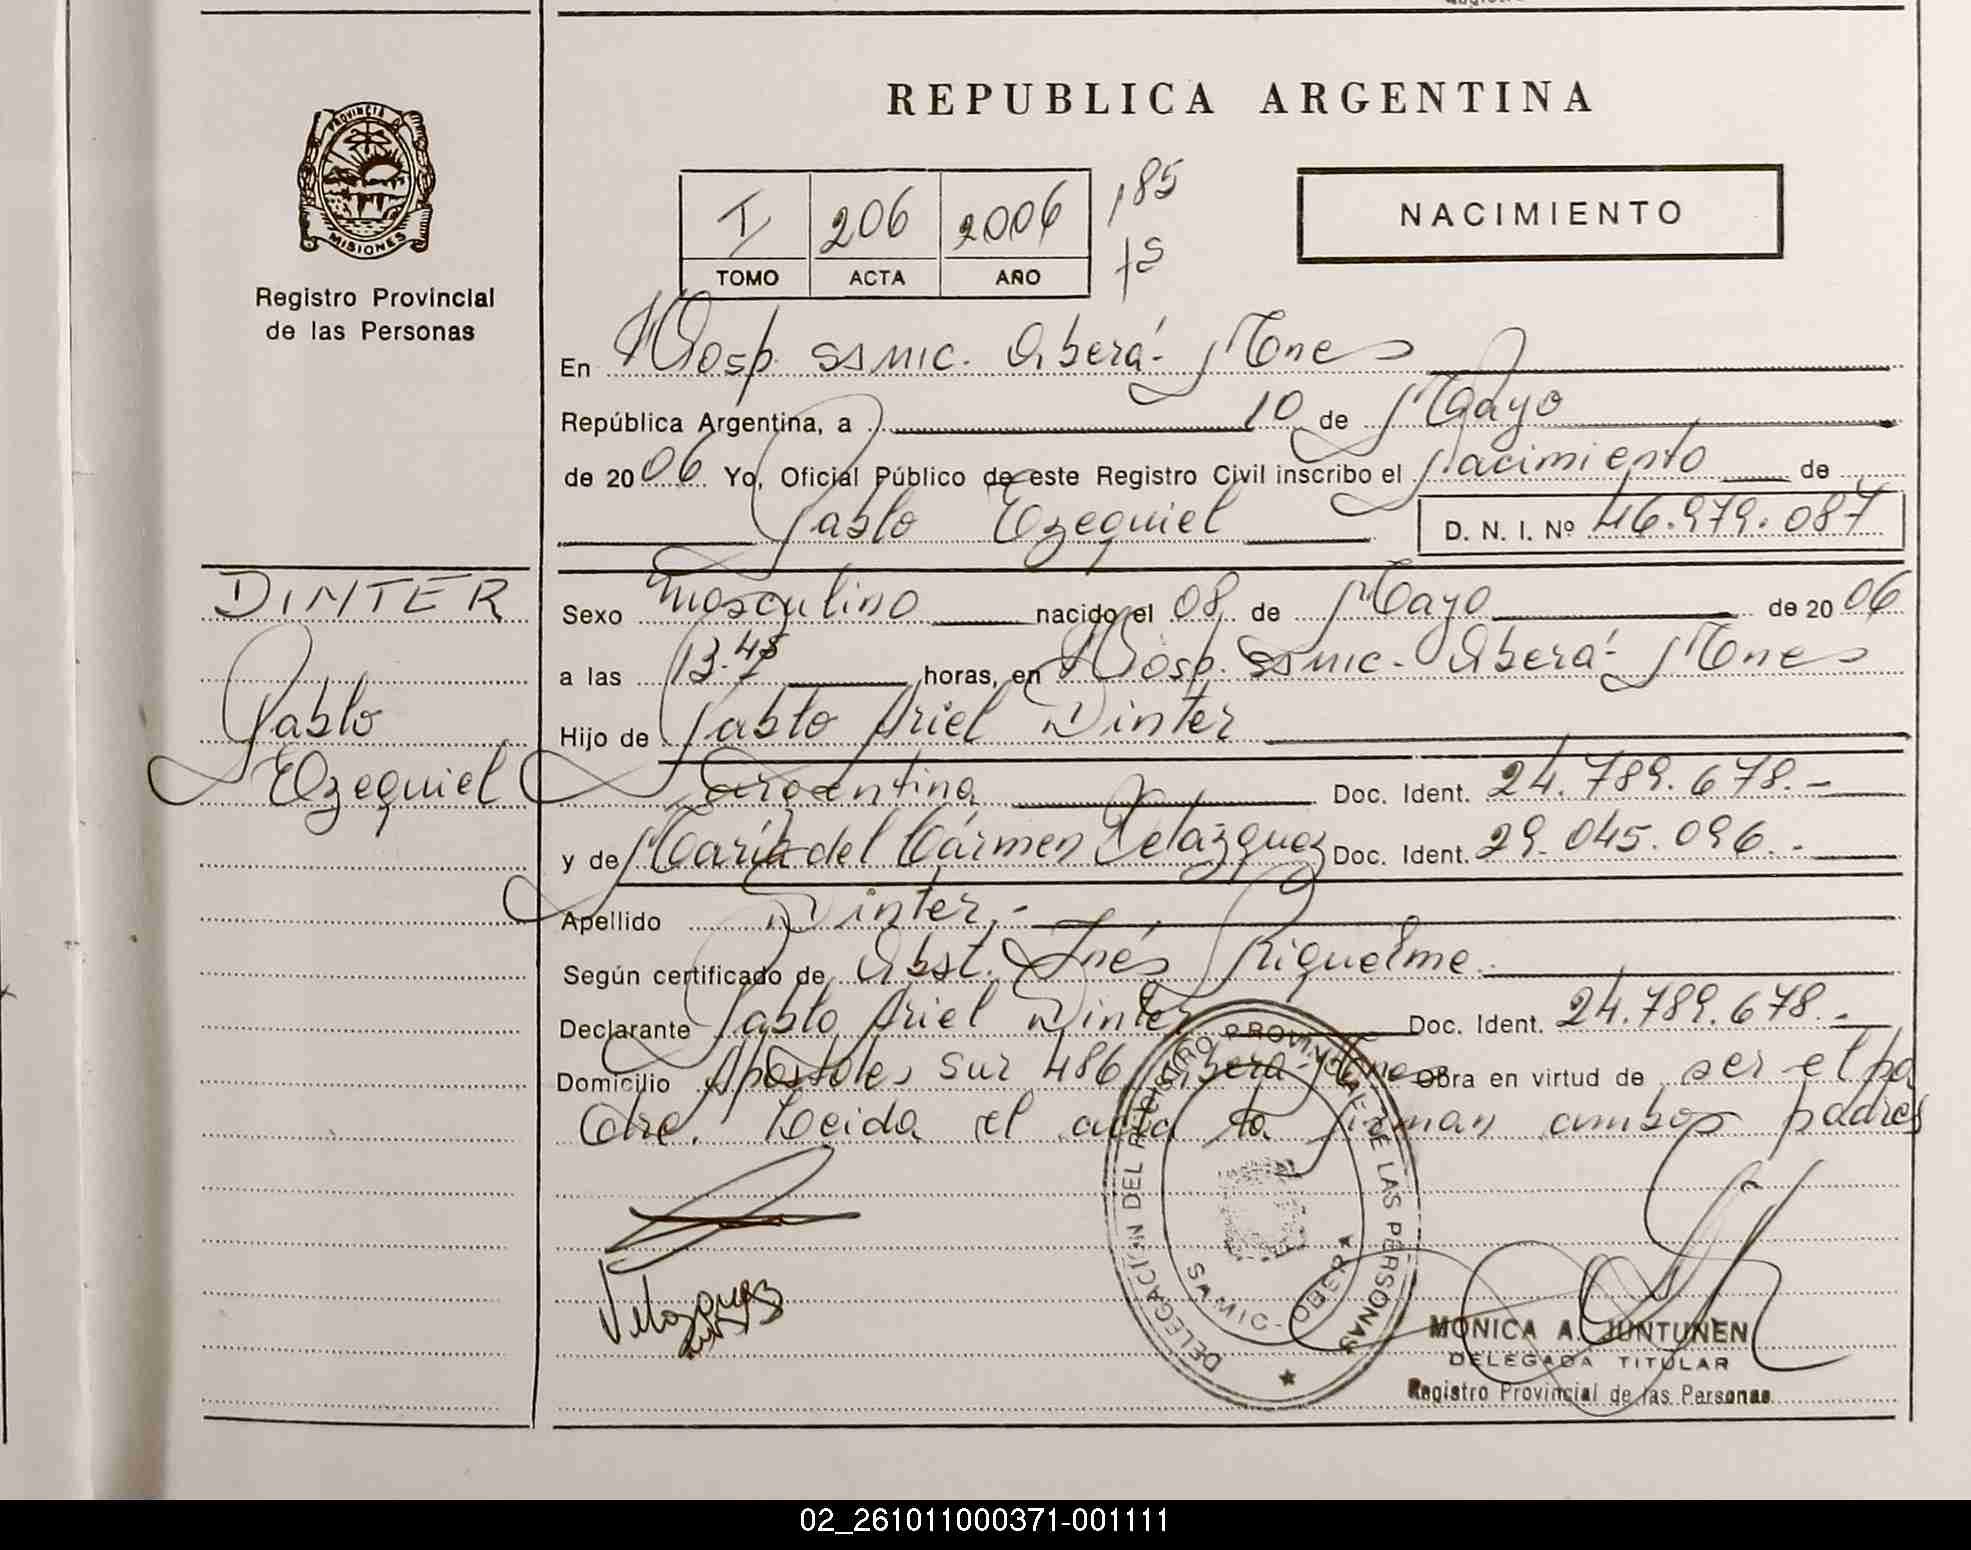 PROVINCIA DE
MISIONES
Registro Provincial
de las Personas
REPUBLICA ARGENTINA
I 206 2006 185
TOMO ACTA AÑO
NACIMIENTO
En Hosp. SAMIC. Oberá- Mnes
República Argentina, a 10 de Mayo
de 2006 Yo, Oficial Público de este Registro Civil inscribo el Nacimiento de
Pablo Ezequiel D. N. I. Nº 46.979.087
DINTER
Pablo
Ezequiel
Sexo Masculino nacido el 08 de Mayo de 2006
a las 13.45 horas, en Hosp. SAMIC- Oberá- Mnes
Hijo de Pablo Ariel Dinter
argentina Doc. Ident. 24.789.678.-
y de María del Cármen Velázquez Doc. Ident. 29.045.096.-
Apellido Dinter.-
Según certificado de Obst. Inés Riquelme.
Declarante Pablo Ariel Dinter Doc. Ident. 24.789.678.-
Domicilio Apóstoles Sur 486 Oberá- Mnes Obra en virtud de ser el pa
dre. Leida el acta la firman ambos padres
Velazquez
DELEGACION DEL REGISTRO PROVINCIAL DE LAS PERSONAS
SAMIC - OBERA
MONICA A. JUNTUNEN
DELEGADA TITULAR
Registro Provincial de las Personas
02_261011000371-001111